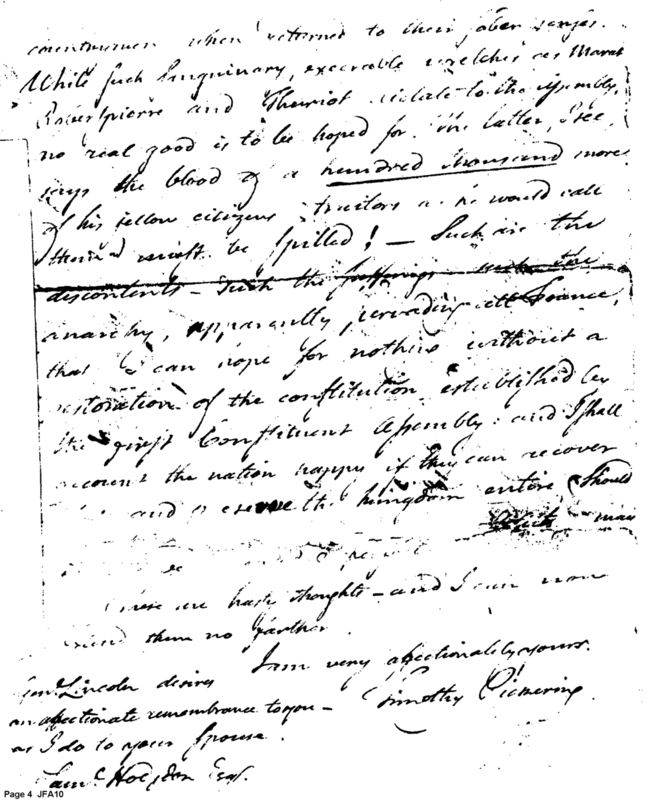 countrymen when returned to their sober senses.
While such sanguinary, execrable wretches as Marat
Robertspierre and Thurriot dictate to the assembly,
no real good is to be hoped for. The latter, I see,
says the blood of a hundred thousand more
of his fellow citizens traitors as he would call
them must be spilled! — Such are the
discontents — such the sufferings such the
anarchy, apparently pervading all France,
that I can hope for nothing without a
restoration of the constitution established by
the first Constituent Assembly: and I shall
account the nation happy if they can recover
and preserve the kingdom entire. Should
may
These are hasty thoughts — and I can now
extend them no farther.
I am very affectionately yours.
Timothy Pickering
Genl. Lincoln desires
an affectionate remembrance to you —
as I do to your Spouse.
Saml. Hodgdon Esq.
Page 4 JFA10